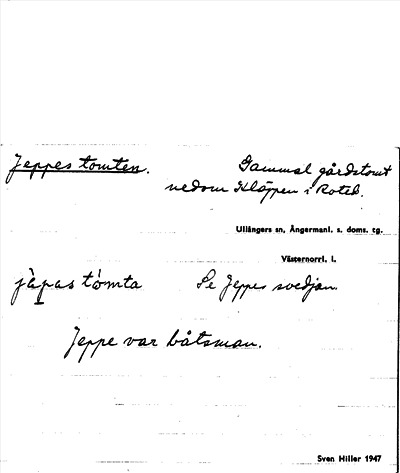 Jeppes tomten. Gammal gårdstomt
nedom Kläppen i Roteb.
Ullångers sn, Ångermanl. s. doms. tg.
Västernorrl. l.
jä̀pas tòmta Se Jeppes svedjan.
Jeppe var båtsman.
Sven Hiller 1947